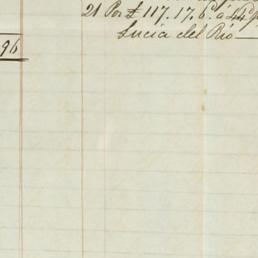 21 Por £ 117.17.6. á 44
Lucia del Rio
96